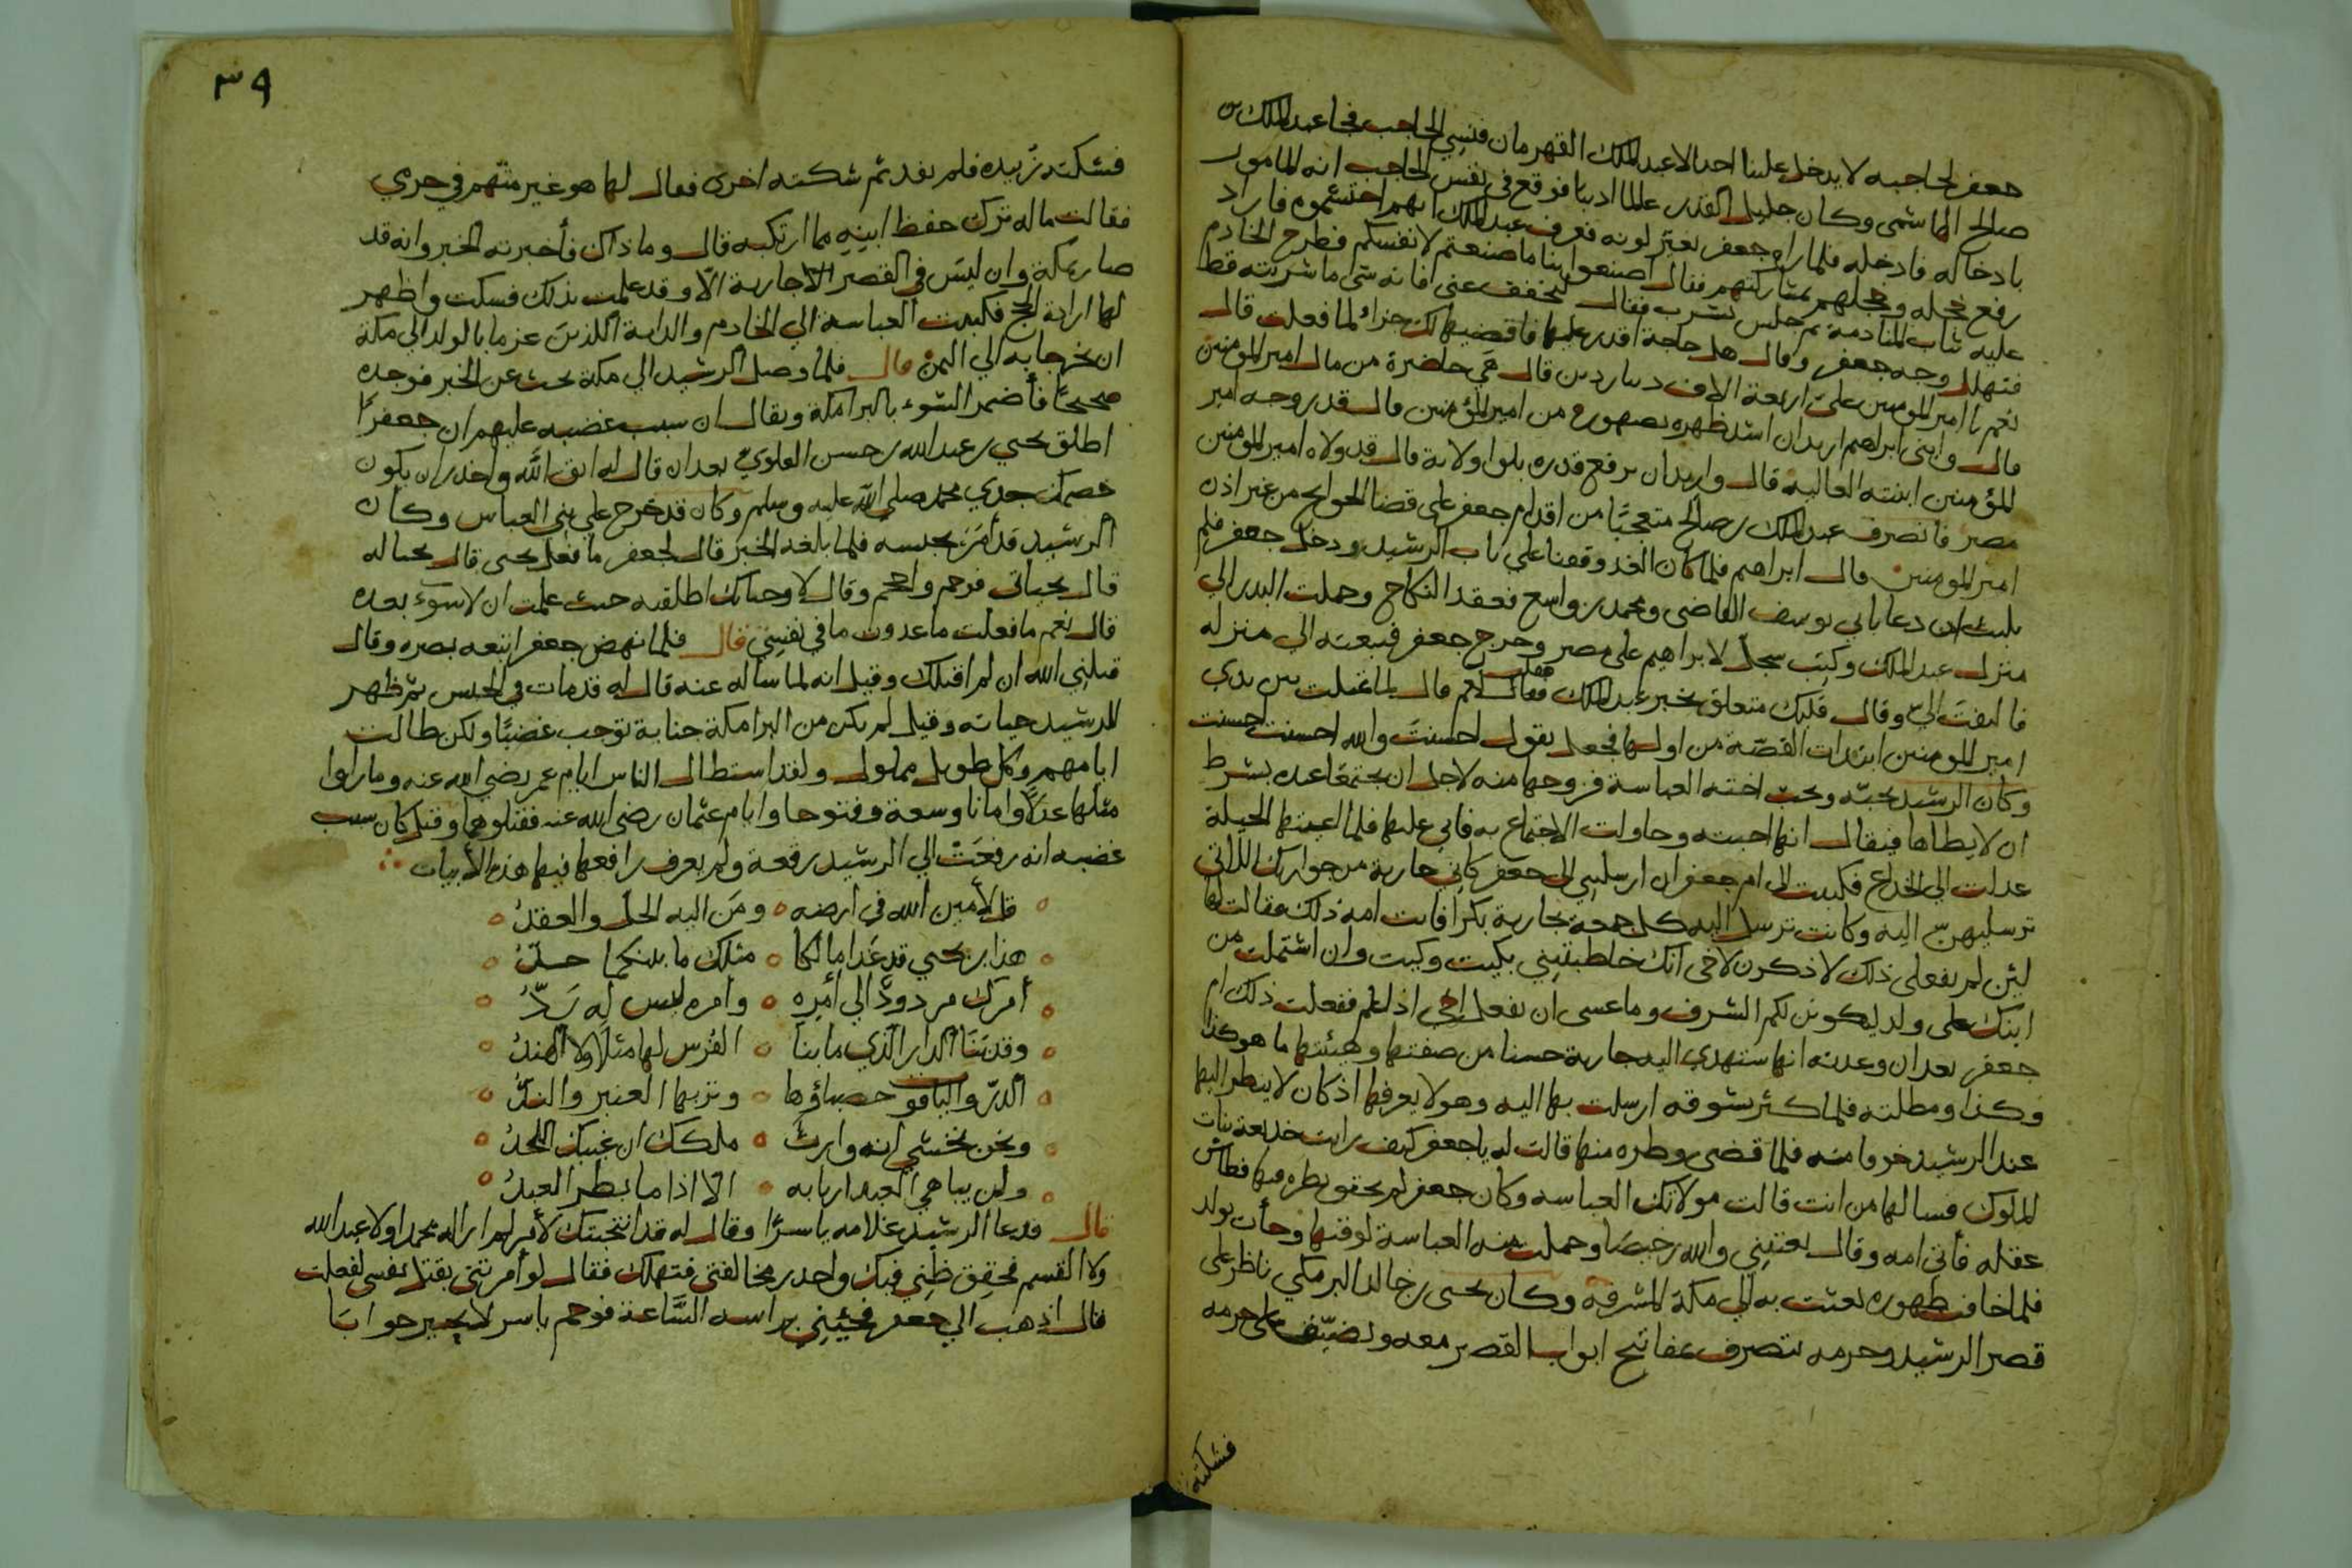 جعفر لحاجبه لا يدخل علينا احد الا عبد الملك القهرمان فنسي الحاجب فجا عبد الملك بن
صالح الهاشمى وكان جليل القدر عالما اديبا فوقع في نفس الحاجب انه المامور
بادخاله فادخله فلما راه جعفر تغير لونه فعرف عبد الملك انهم احتشموه فاراد
رفع خجله وخجلهم بمشاركتهم فقال اصنعوا بنا ما صنعتم لانفسكم فطرح الخادم
عليه ثياب المنادمة ثم جلس يشرب فقال ليخفف عنى فانه شى ما شربته قط
فتهلل وجه جعفر وقال هل حاجة اقدر عليها فاقضيها لك جزاء لما فعلت قال
نعم يا امير المومنين على اربعة الاف دينار دين قال هي حاضرة من مال امير المومنين
قال وابنى ابراهيم اريد ان اشد ظهره بصهورع من امير المؤمنين قال قد زوجه امير
المؤمنين ابنته العالية قال واريد ان يرفع قدره بلوا ولاية قال قد ولاه امير المومنين
مصر فانصرف عبد الملك بن صالح متعجبًا من اقدام جعفر على قضا الحوايج من غير اذن
امير المومنين قال ابراهيم فلما كان الغد وقفنا على باب الرشيد ودخل جعفر فلم
يلبث ان دعا بابي يوسف القاضى ومحمد بن واسع فعقد النكاح وحملت البدر الي
منزل عبد الملك وكتب سجل لابراهيم على مصر وخرج جعفر فتبعته الى منزله
فالتفت اليّ وقال قلبك متعلق بخبر عبد الملك فقلت نعم قال لما مثلت بين يدي
امير المومنين ابتدات القصة من اولها فجعل يقول احسنت والله احسنت احسنت
وكان الرشيد يحبّه ويحب اخته العباسة فزوجها منه لاجل ان يجتمعا عنده بشرط
ان لا يطاها فيقال انها احبته وحاولت الاجتماع به فابي عليها فلما اعيتها الحيلة
عدلت الى الخداع فكتبت الى ام جعفر ان ارسليني الى جعفر كاني جارية من جوارك اللاتي
ترسليهن اليه وكانت ترسل اليه كل جمعة بجارية بكرا فابت امه ذلك فقالت لها
لئن لم تفعلى ذلك لاذكرن لاخى انك خاطبتيني بكيت وكيت وان اشتملت من
ابنك على ولد ليكونن لكم الشرف وما عسى ان يفعل اخى اذا علم ففعلت ذلك ام
جعفر بعد ان وعدته انها ستهدي اليه جارية حسنا من صفتها وهيئتها ما هو كذا
وكذا ومطلته فلما كثر شوقه ارسلت بها اليه وهو لا يعرفها اذ كان لا ينظر اليها
عند الرشيد خوفا منه فلما قضى وطره منها قالت له يا جعفر كيف رايت خديعة بنات
الملوك فسالها من انت قالت مولاتك العباسه وكان جعفر لم يحقق نظره فيها فطاش
عقله فأتى امه وقال بعتيني والله رخيصًا وحملت منه العباسة لوقتها وجأت بولد
فلما خافت ظهوره بعثت به الي مكة المشرفة وكان يحيى بن خالد البرمكي ناظر على
قصر الرشيد وحرمه يتصرف بمفاتيح ابواب القصر معه ويضيّق على حرمه
فشكته
٣٩
فشكته زُبيده فلم يفد ثم شكته اخرى فقال لها هو غير متهم في حرمي
فقالت ماله ترك حفظ ابنه مما ارتكبه قال وما ذاك فأخبرته الخبر وانه قد
صار بمكة وان ليس في القصر الا جارية الا وقد علمت بذلك فسكت واظهر
لها ارادة الحج فكتبت العباسة الي الخادم والداية اللذين عزما بالولد الي مكة
ان يخرجا به الي اليمن قال فلما وصل الرشيد الي مكة بحث عن الخبر فوجده
صحيحًا فأضمر السّوء بالبرامكة ويقال ان سبب غضبه عليهم ان جعفرًا
اطلق يحيي بن عبد الله بن حسن العلوي بعد ان قال له اتق الله واحذر ان يكون
خصمك جدي محمد صلي الله عليه وسلم وكان قد خرج علي بني العباس وكان
الرشيد قد أمَرَ بحبسه فلما بلغه الخبر قال لجعفر ما فعل يحيى قال بحاله
قال بحياتى فوجم واحجم وقال لا وحياتك اطلقته حيث علمت ان لا سوء بعده
قال نعم ما فعلت ما عدوت ما في نفسي قال فلما نهض جعفر اتبعه بصره وقال
قتلني الله ان لم اقتلك وقيل انه لما ساله عنه قال له قد مات في الحبس ثم ظهر
للرشيد حياته وقيل لم يكن من البرامكة جناية توجب غضبًا ولكن طالت
ايامهم وكل طويل مملول ولقد استطال الناس ايام عمر رضي الله عنه وما راوا
مثلها عدلًا وامانا وسعة وفتوحا وايام عثمان رضي الله عنه فقتلوهما وقيل كان سبب
غضبه انه رفعَتْ الي الرشيد رقعة ولم يعرف رافعها فيها هذه الأبيات
قل لأمين الله في ارضه ومَن اليه الحلّ والعقدُ
هذا بن يحيي قد غدا مالكا مثلك ما بينكما حدّ
أمرك مردودٌ الي أمره وامره ليس له رَدّ
وقد بَنَا الدار الّذي ما بنا الفُرس لها مثلًا ولا الهندُ
الدرّ والياقوت حصباؤها وتربها العنبر والندُّ
ونحن نخشي انه وارث ملكك ان غيبك اللحدُ
ولن يباهي العبد اربابه الا اذا ما بطر العبدُ
قال فدعا الرشيد غلامه ياسرًا وقال له قد انتخبتك لأمر لم ار له محمدا ولا عبد الله
ولا القسم فحقق ظني فيك واحذر مخالفتى فتهلك فقال لو أمرتنى بقتل نفسى لفعلت
قال اذهب الي جعفر فجئني براسه السَّاعة فوجم ياسر لا يحير جوابًا